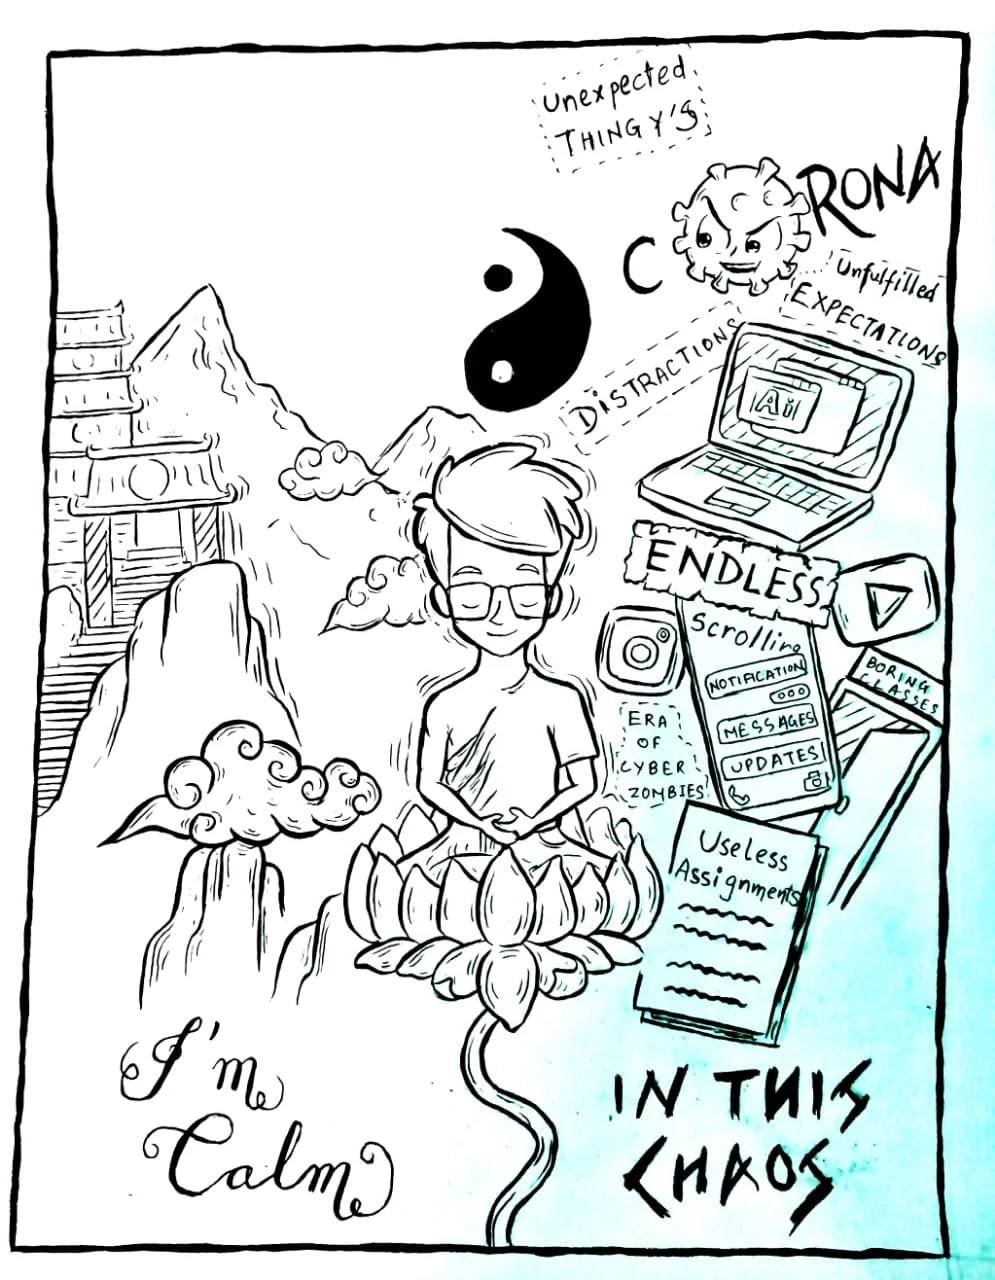 Unexpected
THINGY'S
CORONA
Unfulfilled
EXPECTATIONS
DISTRACTIONS
Ai
ENDLESS
Scrolling
NOTIFICATION
MESSAGES
UPDATES
BORING
CLASSES
ERA
OF
CYBER
ZOMBIES
Useless
Assignments
I'm
Calm
IN THIS
CHAOS